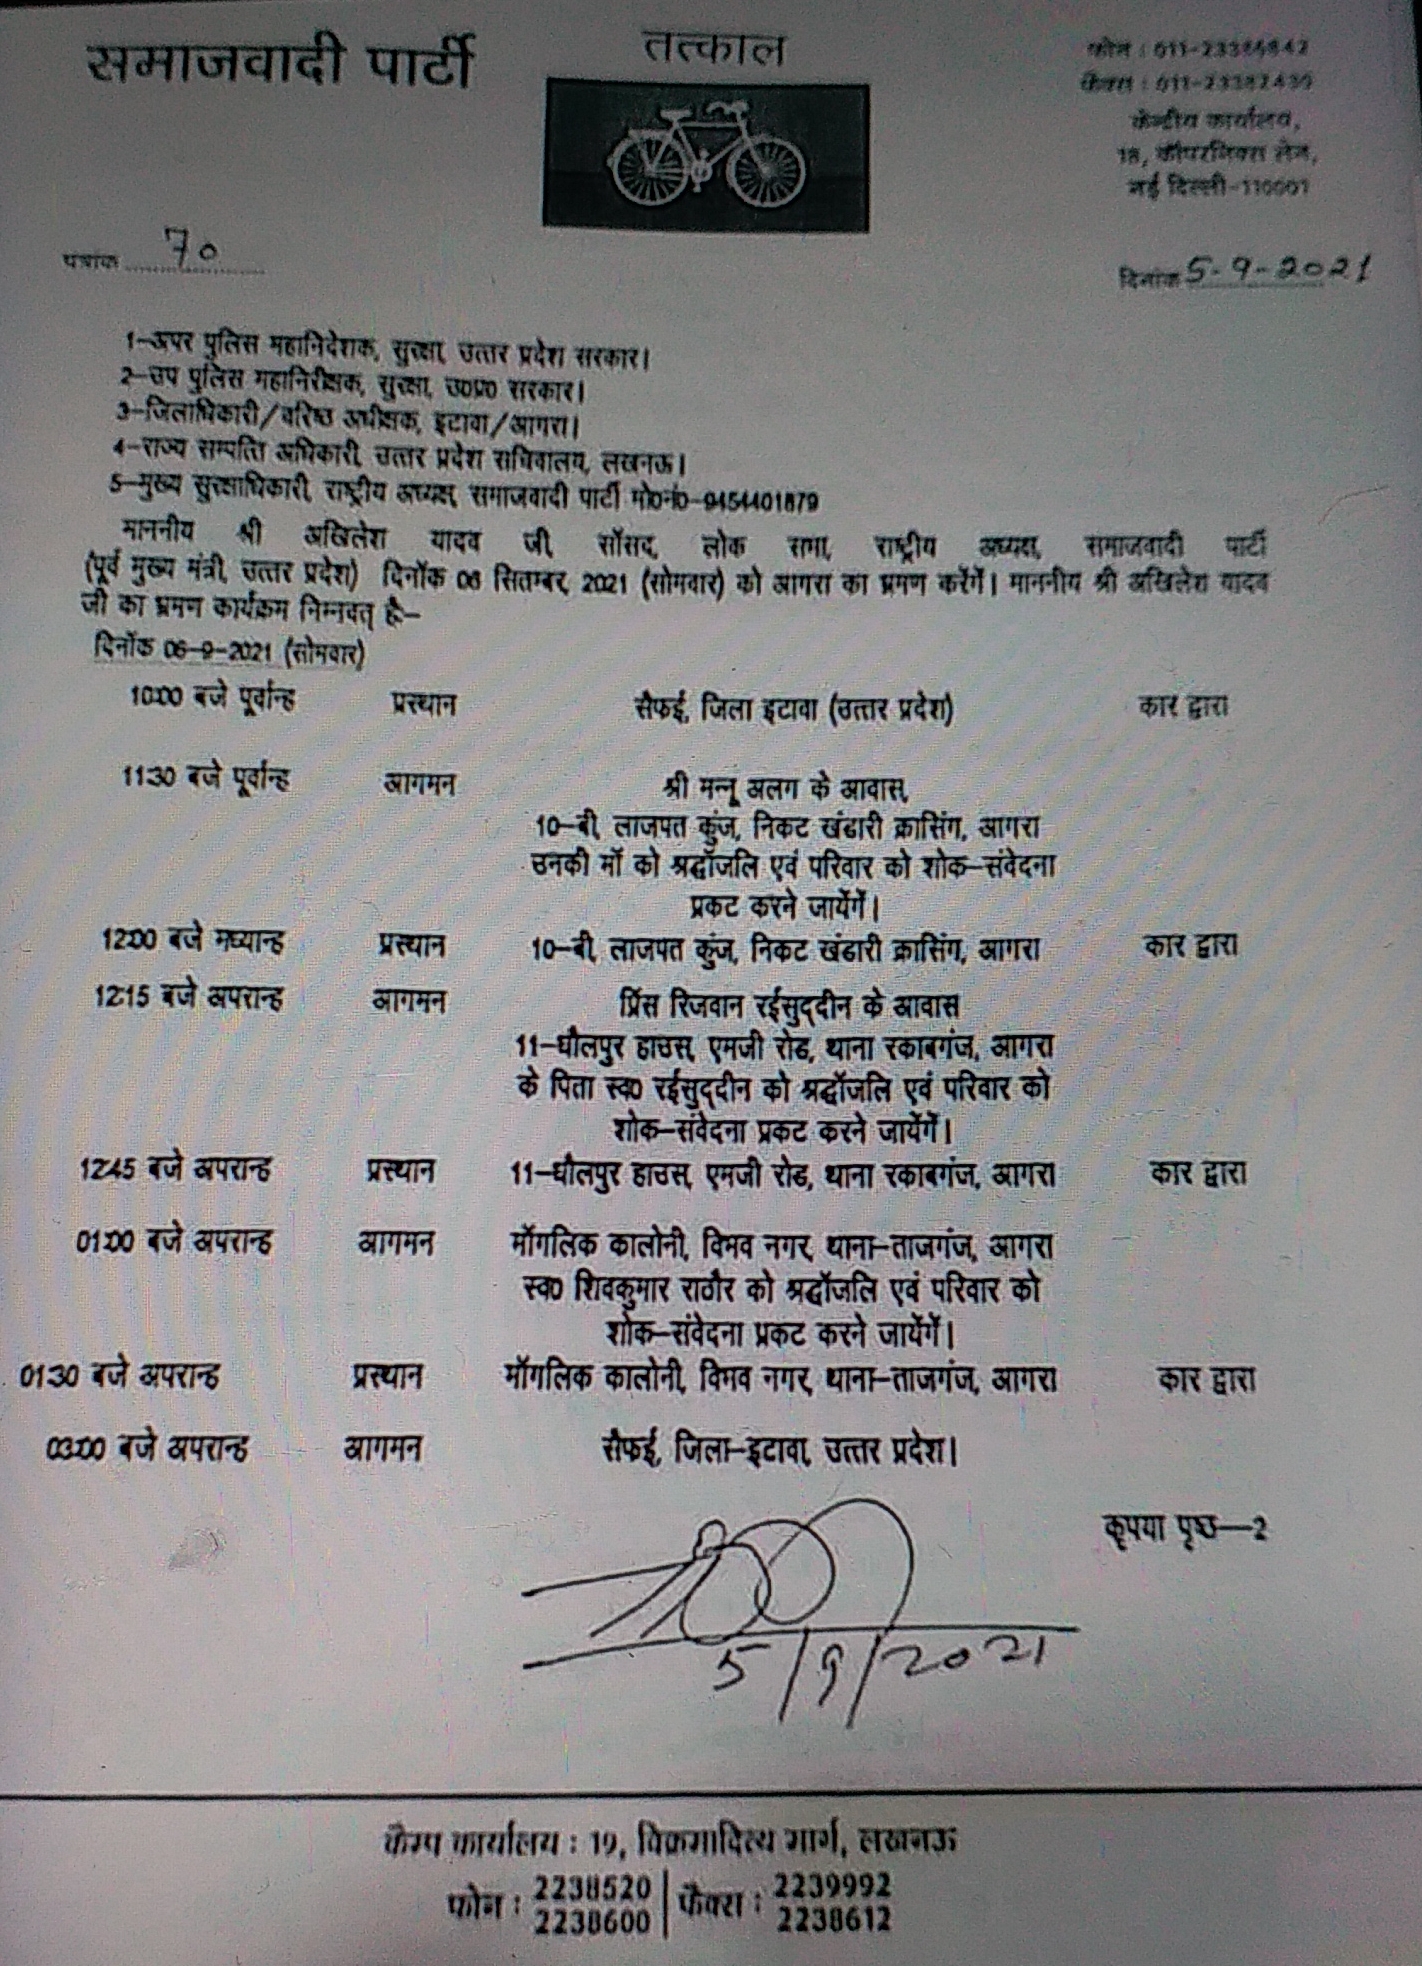 समाजवादी पार्टी
तत्काल
फोन : 011-23386842
फैक्स : 011-23382430
केन्द्रीय कार्यालय,
18, कॉपरनिक्स लेन,
नई दिल्ली-110001
पत्रांक 70
दिनांक 5-9-2021
1–अपर पुलिस महानिदेशक, सुरक्षा, उत्तर प्रदेश सरकार।
2–उप पुलिस महानिरीक्षक, सुरक्षा, उ0प्र0 सरकार।
3–जिलाधिकारी/वरिष्ठ अधीक्षक, इटावा/आगरा।
4–राज्य सम्पत्ति अधिकारी, उत्तर प्रदेश सचिवालय, लखनऊ।
5–मुख्य सुरक्षाधिकारी, राष्ट्रीय अध्यक्ष, समाजवादी पार्टी मो0नं0–9454401879
माननीय श्री अखिलेश यादव जी, सॉसद, लोक सभा, राष्ट्रीय अध्यक्ष, समाजवादी पार्टी
(पूर्व मुख्य मंत्री, उत्तर प्रदेश) दिनॉक 06 सितम्बर, 2021 (सोमवार) को आगरा का भ्रमण करेंगें। माननीय श्री अखिलेश यादव
जी का भ्रमण कार्यक्रम निम्नवत् है:–
दिनॉक 06–9–2021 (सोमवार)
10:00 बजे पूर्वान्ह प्रस्थान सैफई, जिला इटावा (उत्तर प्रदेश) कार द्वारा
11:30 बजे पूर्वान्ह आगमन श्री मन्नू अलग के आवास,
10–बी, लाजपत कुंज, निकट खंदारी क्रासिंग, आगरा
उनकी मॉ को श्रद्धॉजलि एवं परिवार को शोक–संवेदना
प्रकट करने जायेंगें।
12:00 बजे मध्यान्ह प्रस्थान 10–बी, लाजपत कुंज, निकट खंदारी क्रासिंग, आगरा कार द्वारा
12:15 बजे अपरान्ह आगमन प्रिंस रिजवान रईसुद्दीन के आवास
11–धौलपुर हाउस, एमजी रोड, थाना रकाबगंज, आगरा
के पिता स्व0 रईसुद्दीन को श्रद्धॉजलि एवं परिवार को
शोक–संवेदना प्रकट करने जायेंगें।
12:45 बजे अपरान्ह प्रस्थान 11–धौलपुर हाउस, एमजी रोड, थाना रकाबगंज, आगरा कार द्वारा
01:00 बजे अपरान्ह आगमन मॉगलिक कालोनी, विभव नगर, थाना–ताजगंज, आगरा
स्व0 शिवकुमार राठौर को श्रद्धॉजलि एवं परिवार को
शोक–संवेदना प्रकट करने जायेंगें।
01:30 बजे अपरान्ह प्रस्थान मॉगलिक कालोनी, विभव नगर, थाना–ताजगंज, आगरा कार द्वारा
03:00 बजे अपरान्ह आगमन सैफई, जिला–इटावा, उत्तर प्रदेश।
कृपया पृष्ठ–2
5/9/2021
कैम्प कार्यालय : 19, विक्रमादित्य मार्ग, लखनऊ
फोन : 2238520 फैक्स : 2239992
2238600 2238612